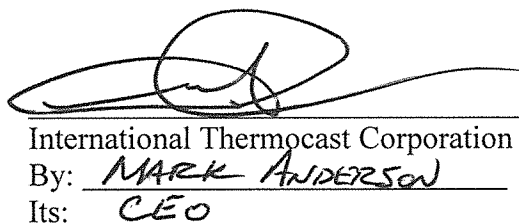 International Thermocast Corporation
By: MARK ANDERSON
Its: CEO